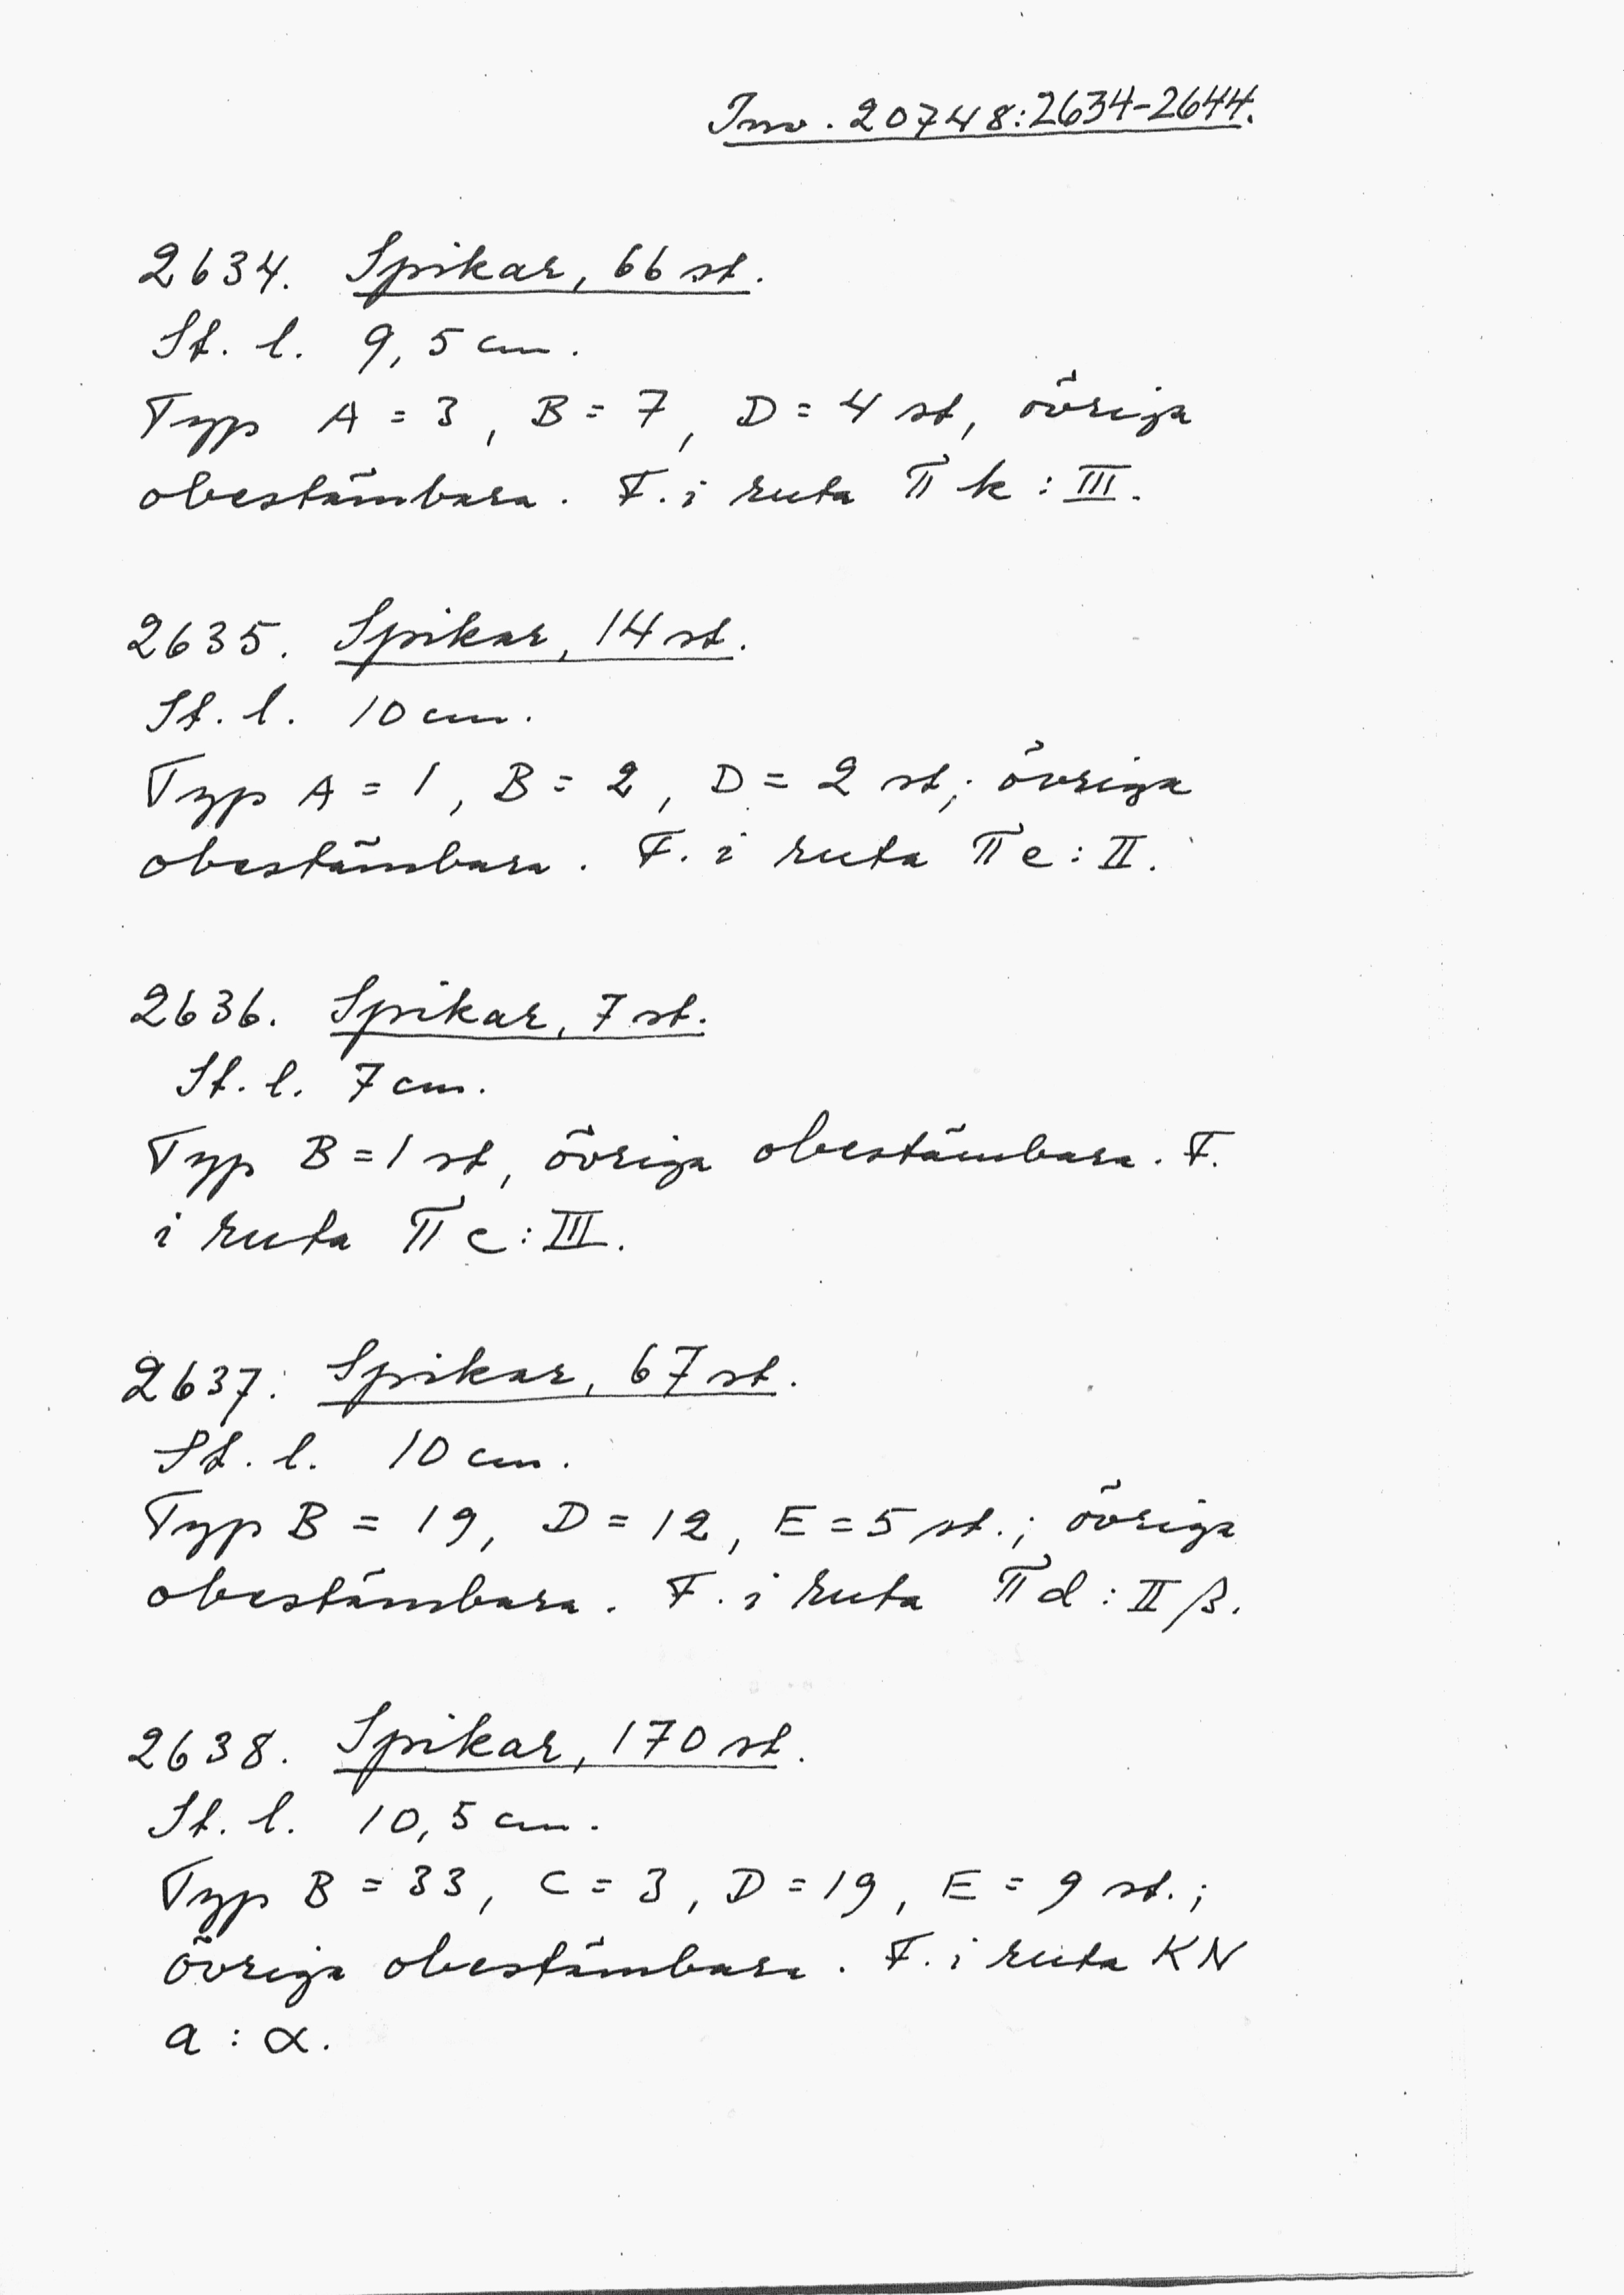 Inv. 20748:2634-2644.
2634. Spikar, 66 st.
St. l. 9,5 cm.
Typ A = 3, B = 7, D = 4 st, övriga
obestämbara. F. i ruta Π k : III.
2635. Spikar, 14 st.
St. l. 10 cm.
Typ A = 1, B = 2, D = 2 st; övriga
obestämbara. F. i ruta Π e : II.
2636. Spikar, 7 st.
St. l. 7 cm.
Typ B = 1 st, övriga obestämbara. F.
i ruta Π c : III.
2637. Spikar, 67 st.
St. l. 10 cm.
Typ B = 19, D = 12, E = 5 st.; övriga
obestämbara. F. i ruta Π d : II β.
2638. Spikar, 170 st.
St. l. 10,5 cm.
Typ B = 33, C = 3, D = 19, E = 9 st.;
övriga obestämbara. F. i ruta KN
a : α.